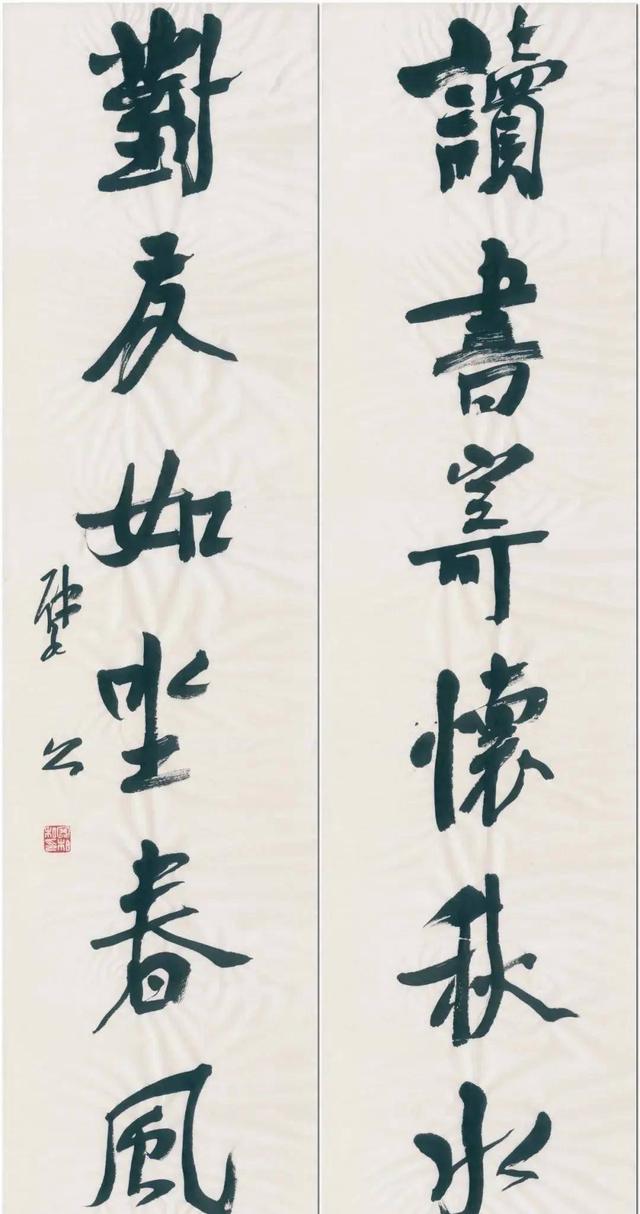 讀書寄懷秋水
對友如坐春風
公